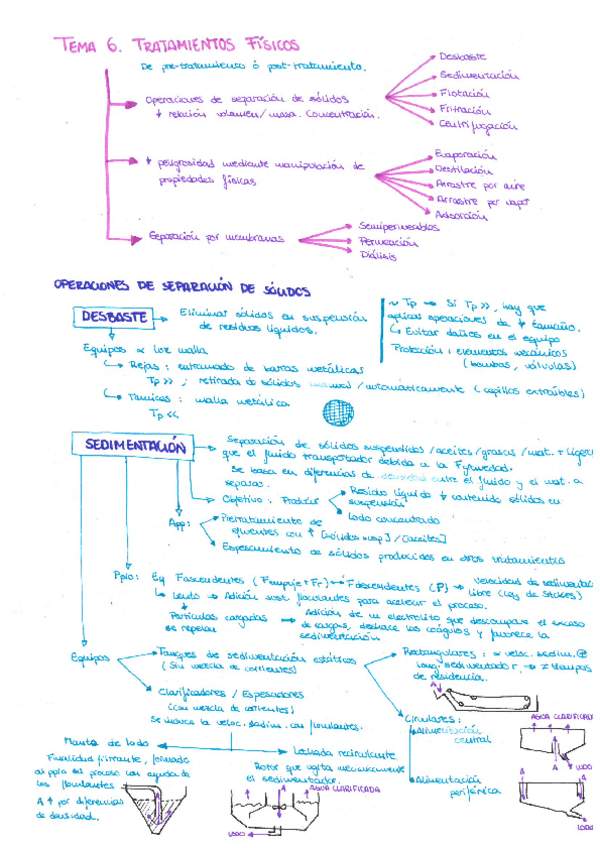 TEMA 6. TRATAMIENTOS FÍSICOS
De pre-tratamiento ó post-tratamiento.
Operaciones de separación de sólidos
↓ relación volumen/masa. Concentración.
Desbaste
Sedimentación
Flotación
Filtración
Centrifugación
↓ peligrosidad mediante manipulación de
propiedades físicas
Evaporación
Destilación
Arrastre por aire
Arrastre por vapor
Adsorción
Separación por membranas
Semipermeables
Permeación
Diálisis
OPERACIONES DE SEPARACIÓN DE SÓLIDOS
DESBASTE → Eliminar sólidos en suspensión
de residuos líquidos.
~ Tp → Si Tp >>, hay que
aplicar operaciones de ↓ tamaño.
↳ Evitar daños en el equipo
Protección: elementos mecánicos
(bombas, válvulas)
Equipos ∝ luz malla
↳ Rejas: entramado de barras metálicas
Tp >> ; retirada de sólidos manual/automáticamente (cepillos extraíbles)
↳ Tamices: malla metálica
Tp <<
SEDIMENTACIÓN
Separación de sólidos suspendidos/aceites/grasas/mat. + ligero
que el fluido transportador debido a la Fgravedad.
Se basa en diferencias de densidad entre el fluido y el mat. a
separar.
Objetivo: Producir
Residuo líquido ↓ contenido sólidos en
suspensión
Lodo concentrado
App:
Pretratamiento de
efluentes con ↑ [sólidos susp] / [aceites]
Espesamiento de sólidos producidos en otros tratamientos
Ppio: Eq Fascendentes (Fempuje + Fr) → Fdescendentes (P) → velocidad de sedimentac
↳ Lento → Adición sust. floculantes para acelerar el proceso.
libre (Ley de Stokes)
Partículas cargadas
se repelen
→ Adición de un electrolito que descompone el exceso
de cargas, deshace los coágulos y favorece la
sedimentación
Equipos
Tanques de sedimentación estáticos
(Sin mezcla de corrientes)
Rectangulares: ∝ veloc. sedim.
long. sedimentador → ≠ tiempos
de residencia.
Clarificadores / Espesadores
(con mezcla de corrientes)
Se mueve la veloc. sedim. con floculantes.
Circulares:
Alimentación
central
Alimentación
periférica
Manto de lodo
Finalidad filtrante, formado
al ppio del proceso con ayuda de
los floculantes
A ↑ por diferencias
de densidad.
Lechada recirculante
Rotor que agita mecánicamente
el sedimentador.
A
AGUA CLARIFICADA
LODO
A
AGUA CLARIFICADA
A
LODO
A
A
LODO